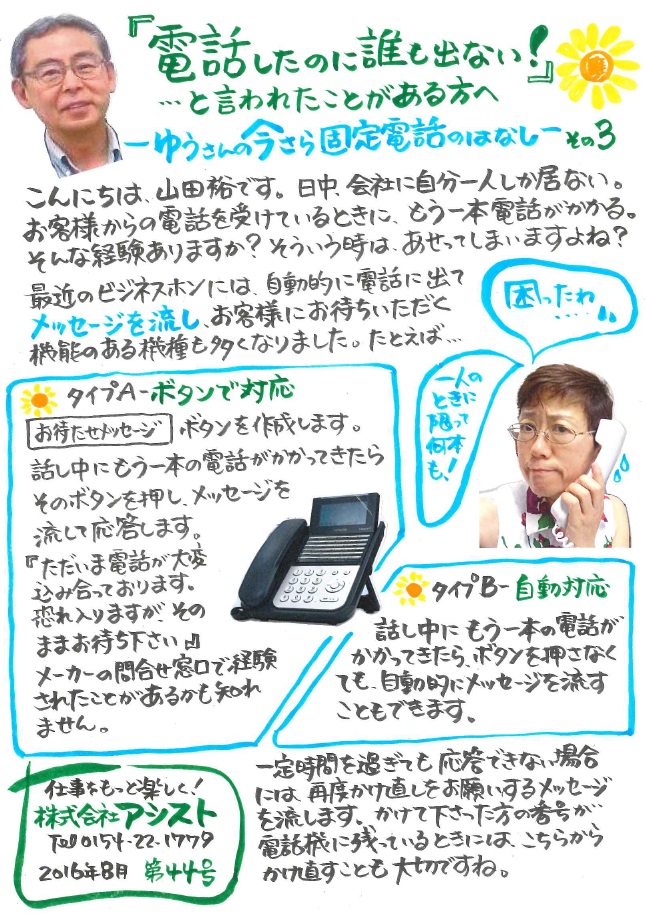 『電話したのに誰も出ない!』
…と言われたことがある方へ
ーゆうさんの今さら固定電話のはなしー その3
こんにちは、山田裕です。日中、会社に自分一人しか居ない。
お客様からの電話を受けているときに、もう一本電話がかかる。
そんな経験ありますか?そういう時は、あせってしまいますよね?
最近のビジネスホンには、自動的に電話に出て
メッセージを流し、お客様にお待ちいただく
機能のある機種も多くなりました。たとえば…
困ったわ
……
一人の
ときに
限って
何本
も、!
タイプA-ボタンで対応
お待たせメッセージ ボタンを作成します。
話し中にもう一本の電話がかかってきたら
そのボタンを押し、メッセージを
流して応答します。
『ただいま電話が大変
込み合っております。
恐れ入りますが、その
ままお待ち下さい』
メーカーの問合せ窓口で経験
されたことがあるかも知れ
ません。
タイプB-自動対応
話し中にもう一本の電話が
かかってきたら、ボタンを押さなく
ても、自動的にメッセージを流す
こともできます。
一定時間を過ぎても応答できない場合
には、再度かけ直しをお願いするメッセージ
を流します。かけて下さった方の番号が
電話機に残っているときには、こちらから
かけ直すことも大切ですね。
仕事をもっと楽しく!
株式会社アシスト
Tel 0154-22-1779
2016年8月 第44号